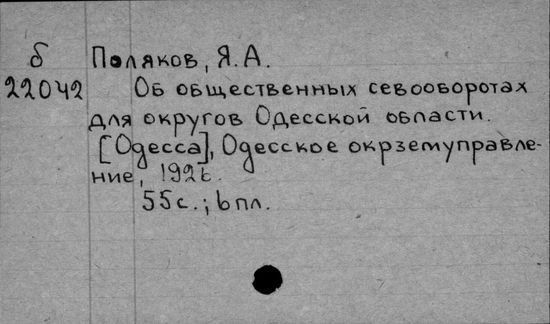 б Поляков, Я.А.
22042 Об общественных севооборотах
для округов Одесской области.
[Одесса], Одесское окрземуправле-
ние,
55с.; 6 пл.